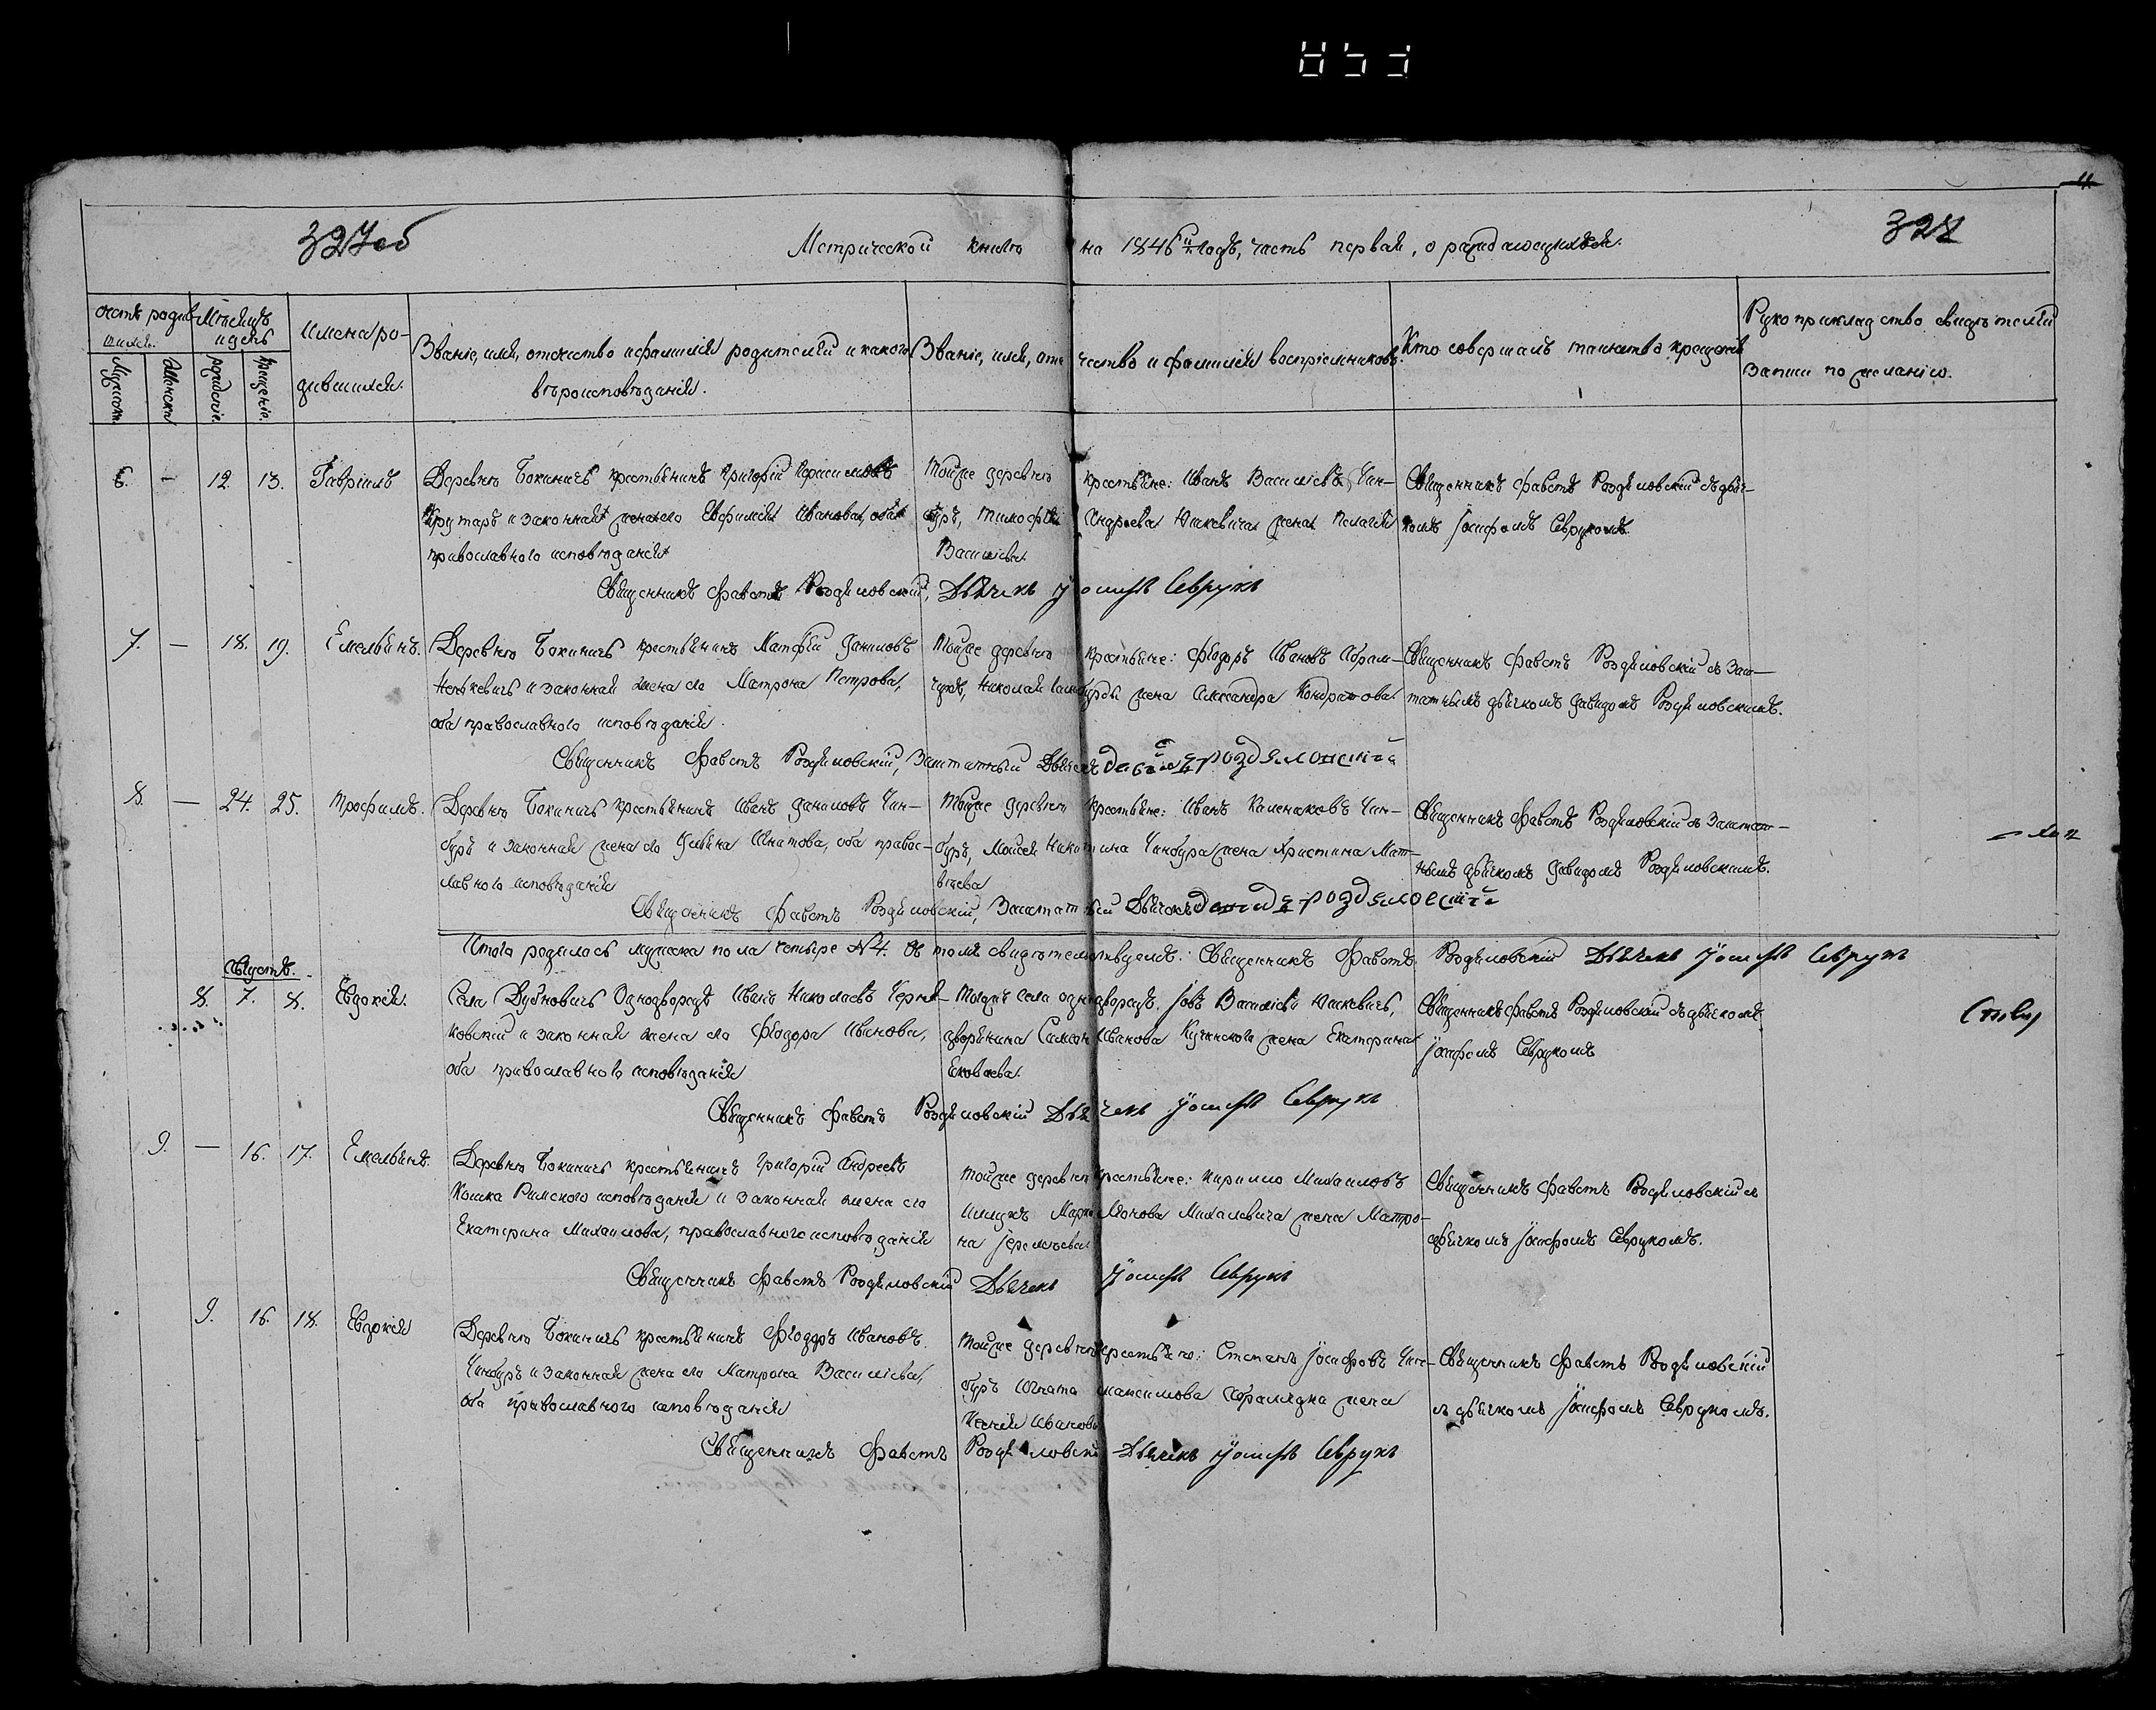 327об
327
Метрической книги на 1846й годъ, часть первая, о раждающихся.
Счетъ родившихся.
Мужеска
Женска
Мѣсяцъ и день
рожденіе.
крещеніе.
Имена родившихся.
Званіе, имя, отечество и фамилія родителей и какого
вѣроисповѣданія.
Званіе, имя, отечество и фамилія воспріемниковъ.
Кто совершалъ таинство крещенія
Рукоприкладство свидѣтелей
записи по желанію.
6. — 12. 13. Гавріилъ
Деревни Бокиничь крестьянинъ Григорій Герасимовъ
Крутаръ и законная жена его Евфимія Иванова, оба
православного исповѣданія
Тойже деревни крестьяне: Иванъ Васильевъ Чин-
буръ, Тимофея Андреева Юшкевича жена Пелагія
Васильева.
Священникъ Фавстъ Роздяловскій съ дьяч-
комъ Іосифомъ Севрукомъ.
Священникъ Фавстъ Роздяловскій, Дьячекъ Іосифъ Севрукъ
7. — 18. 19. Емельянъ.
Деревни Бокиничь крестьянинъ Матфей Даниловъ
Ненькевичь и законная жена его Матрона Петрова,
оба православного исповѣданія.
Тойже деревни крестьяне: Фѣодоръ Ивановъ Абрам-
чукъ, Николая жена Александра Кондратова.
Священникъ Фавстъ Роздяловскій съ Заш-
татнымъ дьячкомъ Давидомъ Роздяловскимъ.
Священникъ Фавстъ Роздяловскій, Заштатный Дьячекъ Давидъ Роздяловскій
8. — 24. 25. Трофимъ.
Деревни Бокиничь крестьянинъ Иванъ Даниловъ Чин-
буръ и законная жена его Ульяна Игнатова, оба правос-
лавного исповѣданія
Тойже деревни крестьяне: Иванъ Чин-
буръ, Моисея Никитина Чинбура жена Христина Мат-
вѣева
Священникъ Фавстъ Роздяловскій съ Заштат-
нымъ дьячкомъ Давидомъ Роздяловскимъ.
Священникъ Фавстъ Роздяловскій, Заштатный Дьячекъ Давидъ Роздяловскій
Итого родилось мужеска пола четыре №4. Въ томъ свидѣтельствуемъ: Священникъ Фавстъ Роздяловскій Дьячекъ Іосифъ Севрукъ
Августъ.
8. 7. 8. Евдокія.
Села Дубновичь Однодворецъ Иванъ Николаевъ Черня-
ковскій и законная жена его Фѣодора Иванова,
оба православного исповѣданія
Тогожъ села однодворецъ Іовъ Васильевъ Юшкевичь,
дворянина Симона Иванова Кучинского жена Екатерина
Яковлева.
Священникъ Фавстъ Роздяловскій съ дьячкомъ
Іосифомъ Севрукомъ
Священникъ Фавстъ Роздяловскій Дьячекъ Іосифъ Севрукъ
9. — 16. 17. Емельянъ.
Деревни Бокиничь крестьянинъ Григорій Андреевъ
Кошка Римского исповѣданія и законная жена его
Екатерина Михаилова, православного исповѣданія
Тойже деревни крестьяне: Кирилло Михаиловъ
Марка Леонова Михалевича жена Матро-
на Іеремѣева
Священникъ Фавстъ Роздяловскій съ
дьячкомъ Іосифомъ Севрукомъ.
Священникъ Фавстъ Роздяловскій Дьячекъ Іосифъ Севрукъ
9. 16. 18. Евдокія
Деревни Бокиничь крестьянинъ Фѣодоръ Ивановъ
Чинбуръ и законная жена его Матрона Васильева,
оба православного исповѣданія
Тойже деревни крестьяне: Степанъ Іосифовъ Чин-
буръ Игната Максимова жена
Ксенія Иванова
Священникъ Фавстъ Роздяловскій
съ дьячкомъ Іосифомъ Севрукомъ.
Священникъ Фавстъ Роздяловскій Дьячекъ Іосифъ Севрукъ